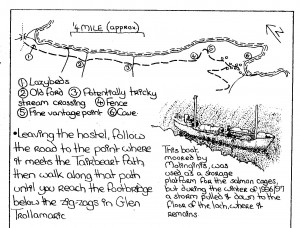 ¼ MILE (approx)
N
① Lazybeds
② Old Ford ③ Potentially tricky
stream crossing ④ Fence
⑤ Fine vantage point ⑥ Cave
•Leaving the hostel, follow
the road to the point where
it meets the Tairbeart Path
then walk along that path
until you reach the Footbridge
below the zig-zags in Glen
Trollamaraig
This boat,
moored by
was
used as a storage
platform for the salmon cages,
but during the winter of 1996/97
a storm pulled it down to the
floor of the loch, where it
remains